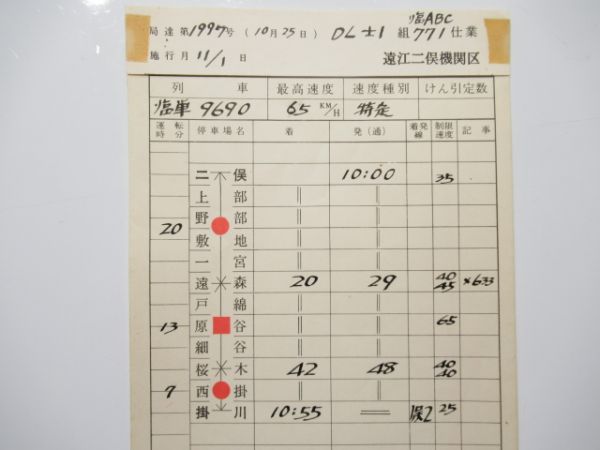 臨ABC
局達第1997号 (10月25日) DL士1 組771仕業
施行月 11/1 日 遠江二俣機関区
列車 最高速度 速度種別 けん引定数
臨単 9690 65 KM/H 特定
運転時分 停車場名 着 発(通) 着発線 制限速度 記事
二俣 10:00 35
上部 || ||
20 野部 || ||
敷地 || ||
一宮 || ||
遠森 20 29 40 45 ×633
戸綿 || ||
13 原谷 || || 65
細谷 || ||
桜木 42 48 40 40
7 西掛 || ||
掛川 10:55 = 俣2 25